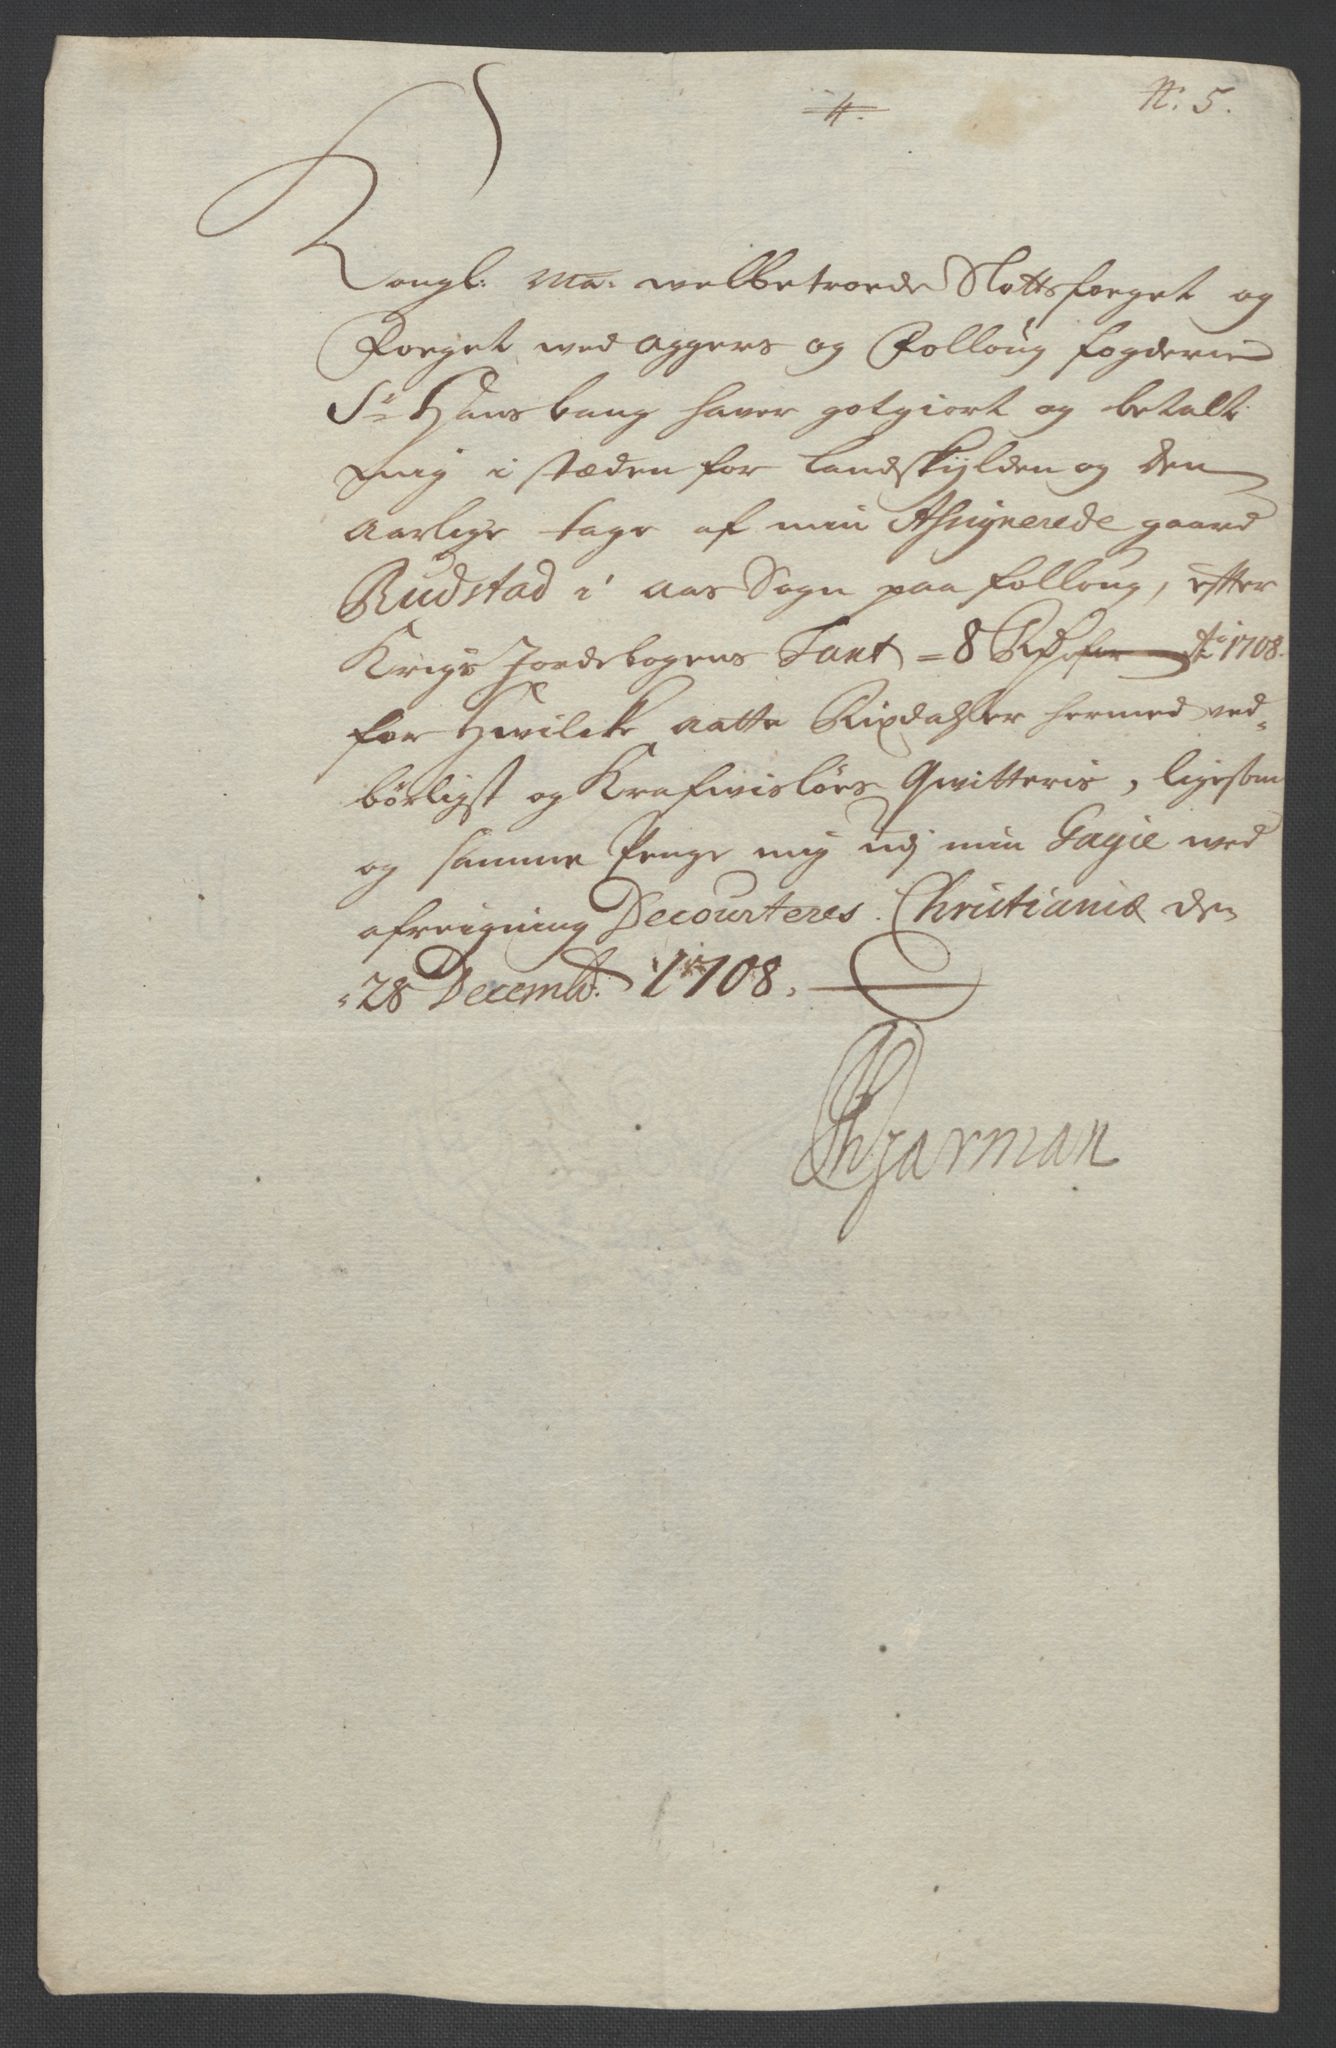 4.
N: 5.
Kongl: Ma: welbetroede Slottsfoeget og
Foeget wed Aggers og Folloug fogderie
Sr Hans bang hawer gotgiort og betalt
mig i stæden for Landskylden og den
aarlige tage af min Assignerede gaard
Rudstad i aas Sogn paa follong, efter
Krigs Jordebogens Taxt = 8 Rdr for Ao 1708.
for hwilcke aatte Rixdahler hermed ved=
börligst og Krafwislöes Qwitteris, ligesom
og samme Penge mig udj min Gagie wed
afreigning Decourteres. Christianiæ den
28 Decembr: 1708.
Gharman